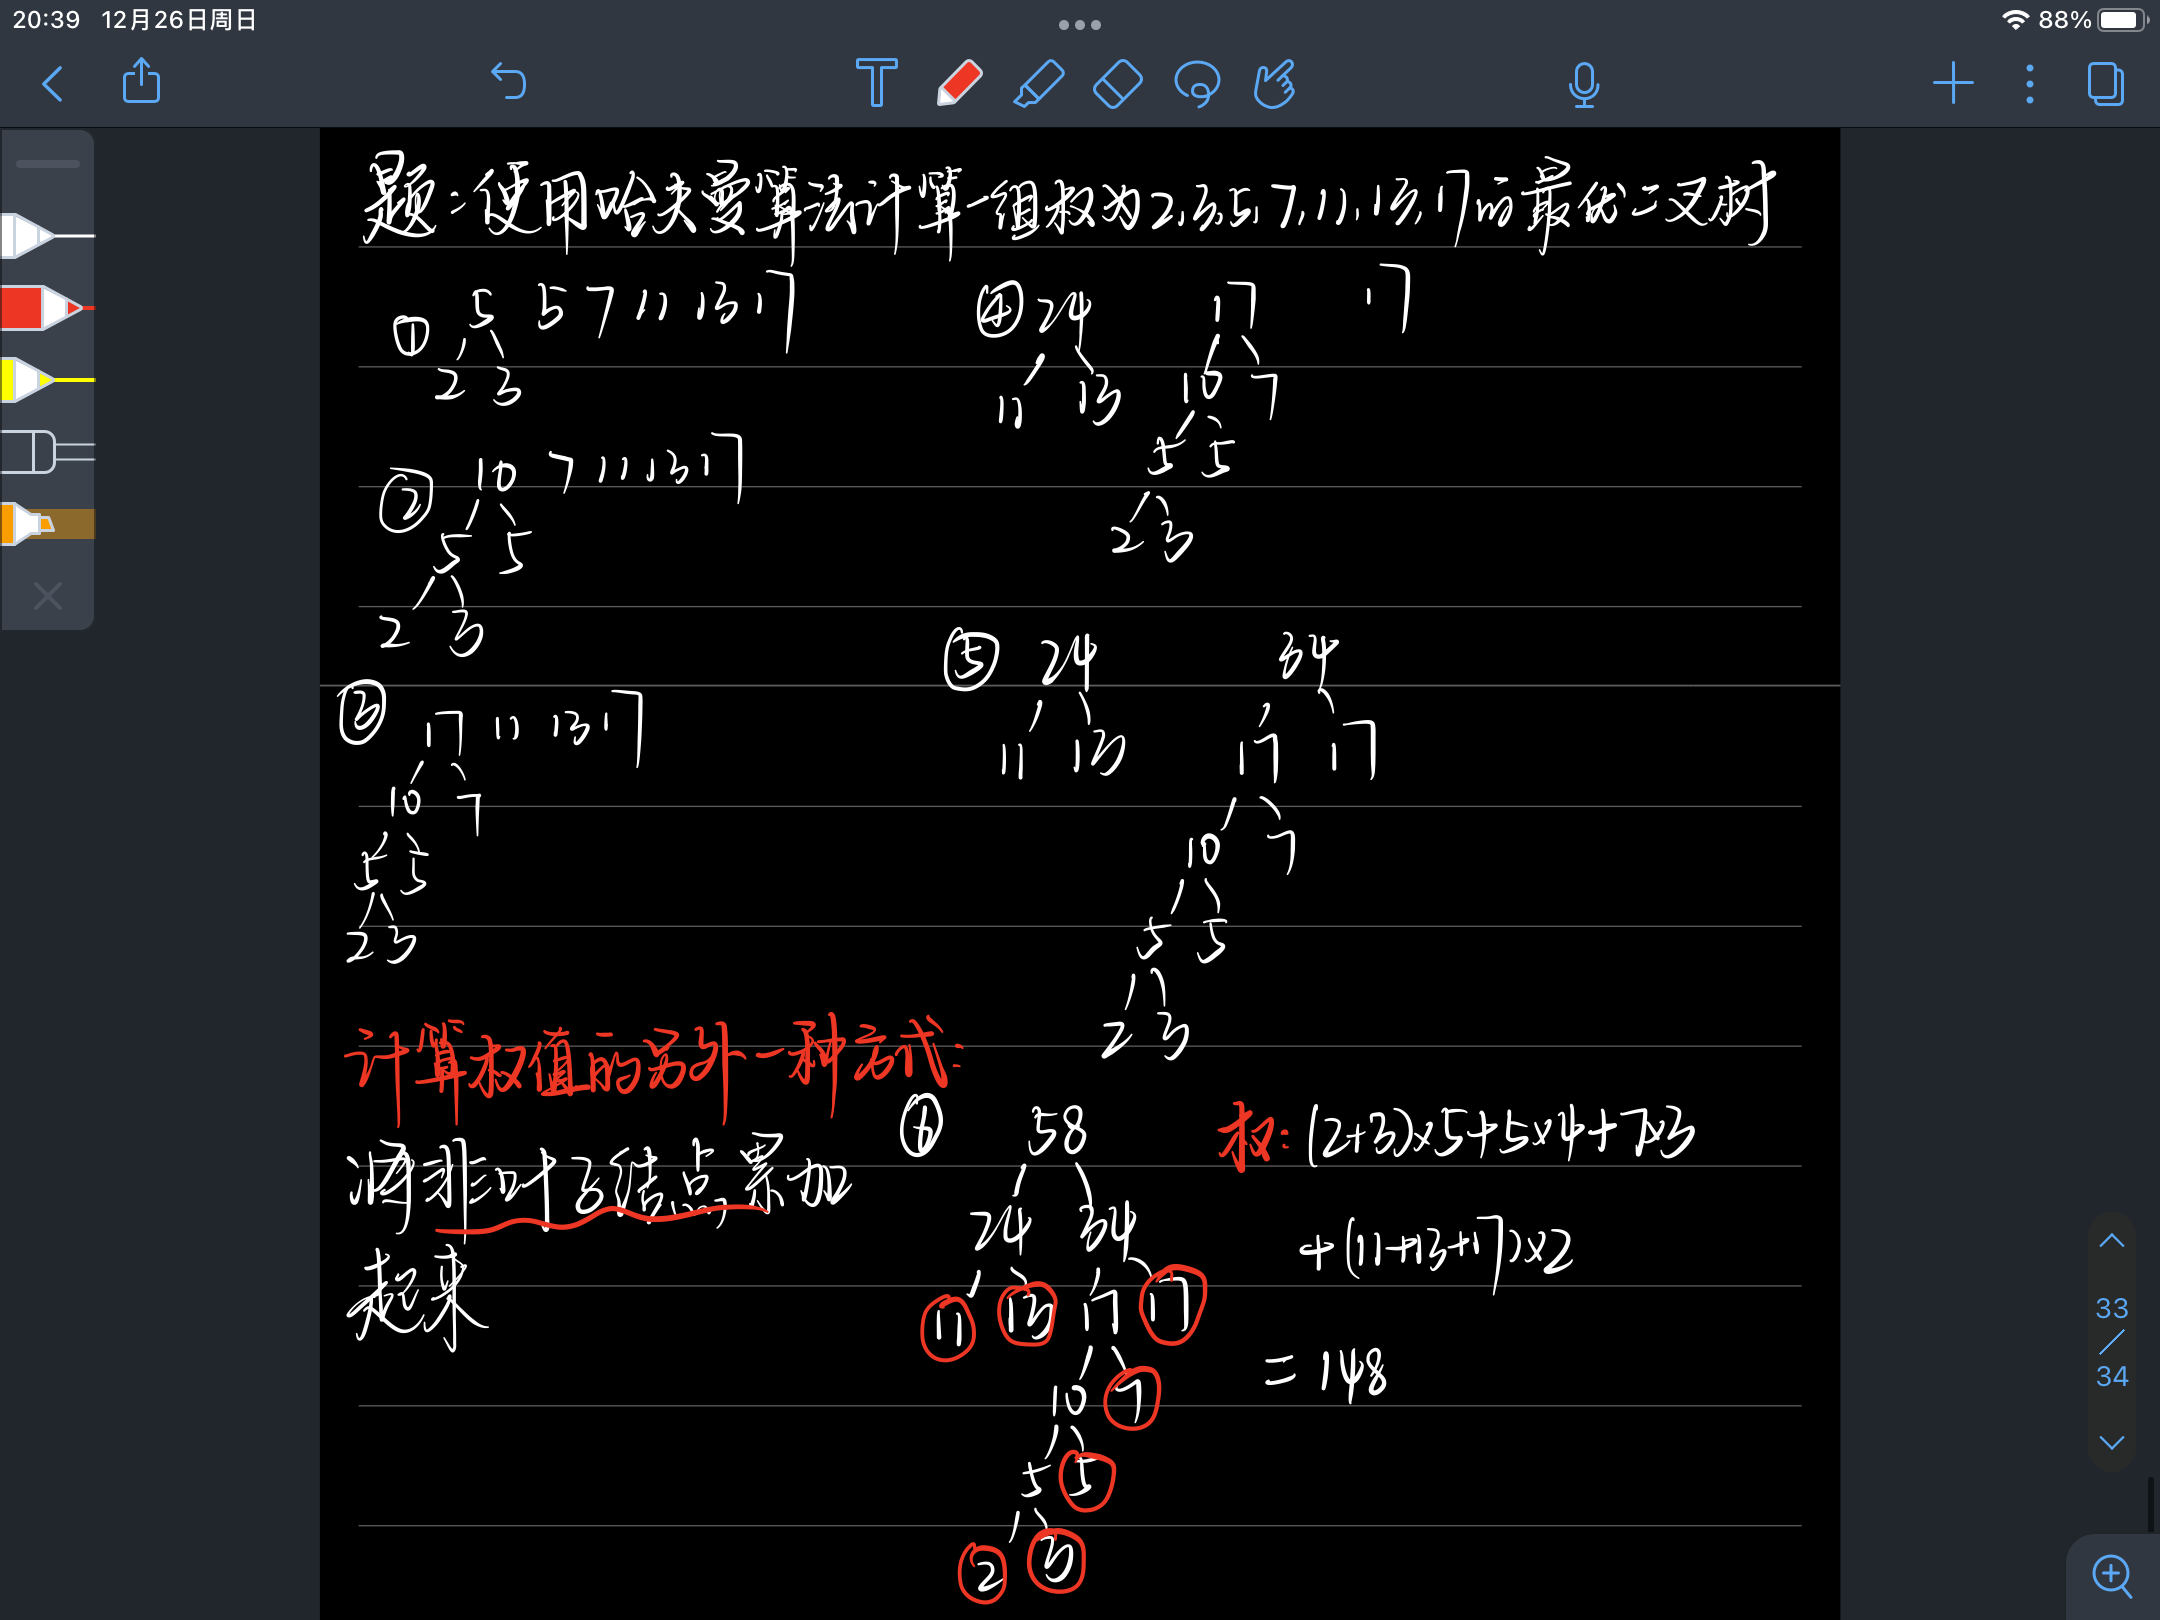 20:39 12月26日周日
88%
题:使用哈夫曼算法计算一组权为2,3,5,7,11,13,17的最优二叉树
① 5 5 7 11 13 17
2 3
② 10 7 11 13 17
5 5
2 3
③ 17 11 13 17
10 7
5 5
2 3
④ 24 17 17
11 13 10 7
5 5
2 3
⑤ 24 34
11 13 17 17
10 7
5 5
2 3
计算权值的另外一种方式:
将非叶子结点累加
起来
⑥ 58
24 34
11 13 17 17
10 7
5 5
2 3
权:(2+3)×5+5×4+7×3
+(11+13+17)×2
=148
33
34